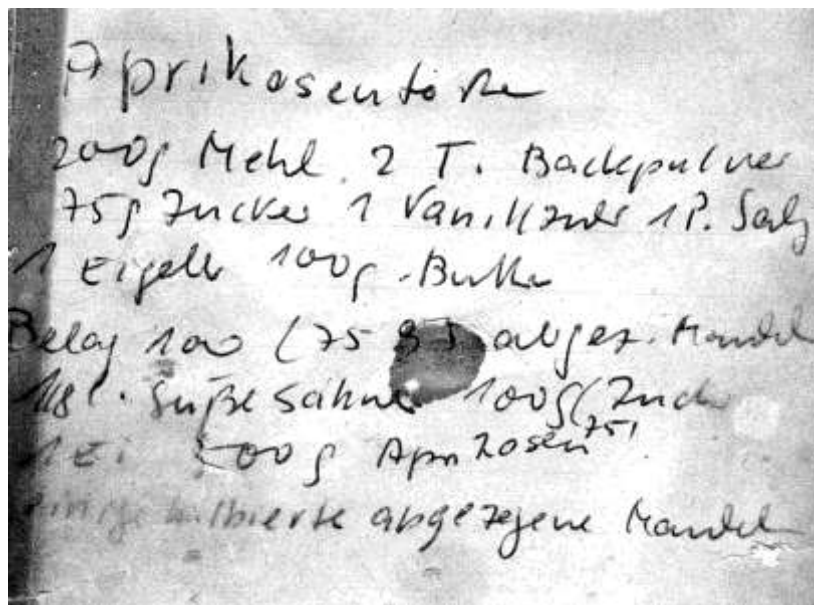 Aprikosentorte
200g Mehl 2 T. Backpulver
75g Zucker 1 Vanillzucker 1 P. Salz
1 Eigelb 100g Butter
Belag 100 (75 g) abgez. Mandel
1/8 l. Süße Sahne 100g (Zuck
75)
1 Ei 500g Aprikosen
einige halbierte abgezogene Mandel